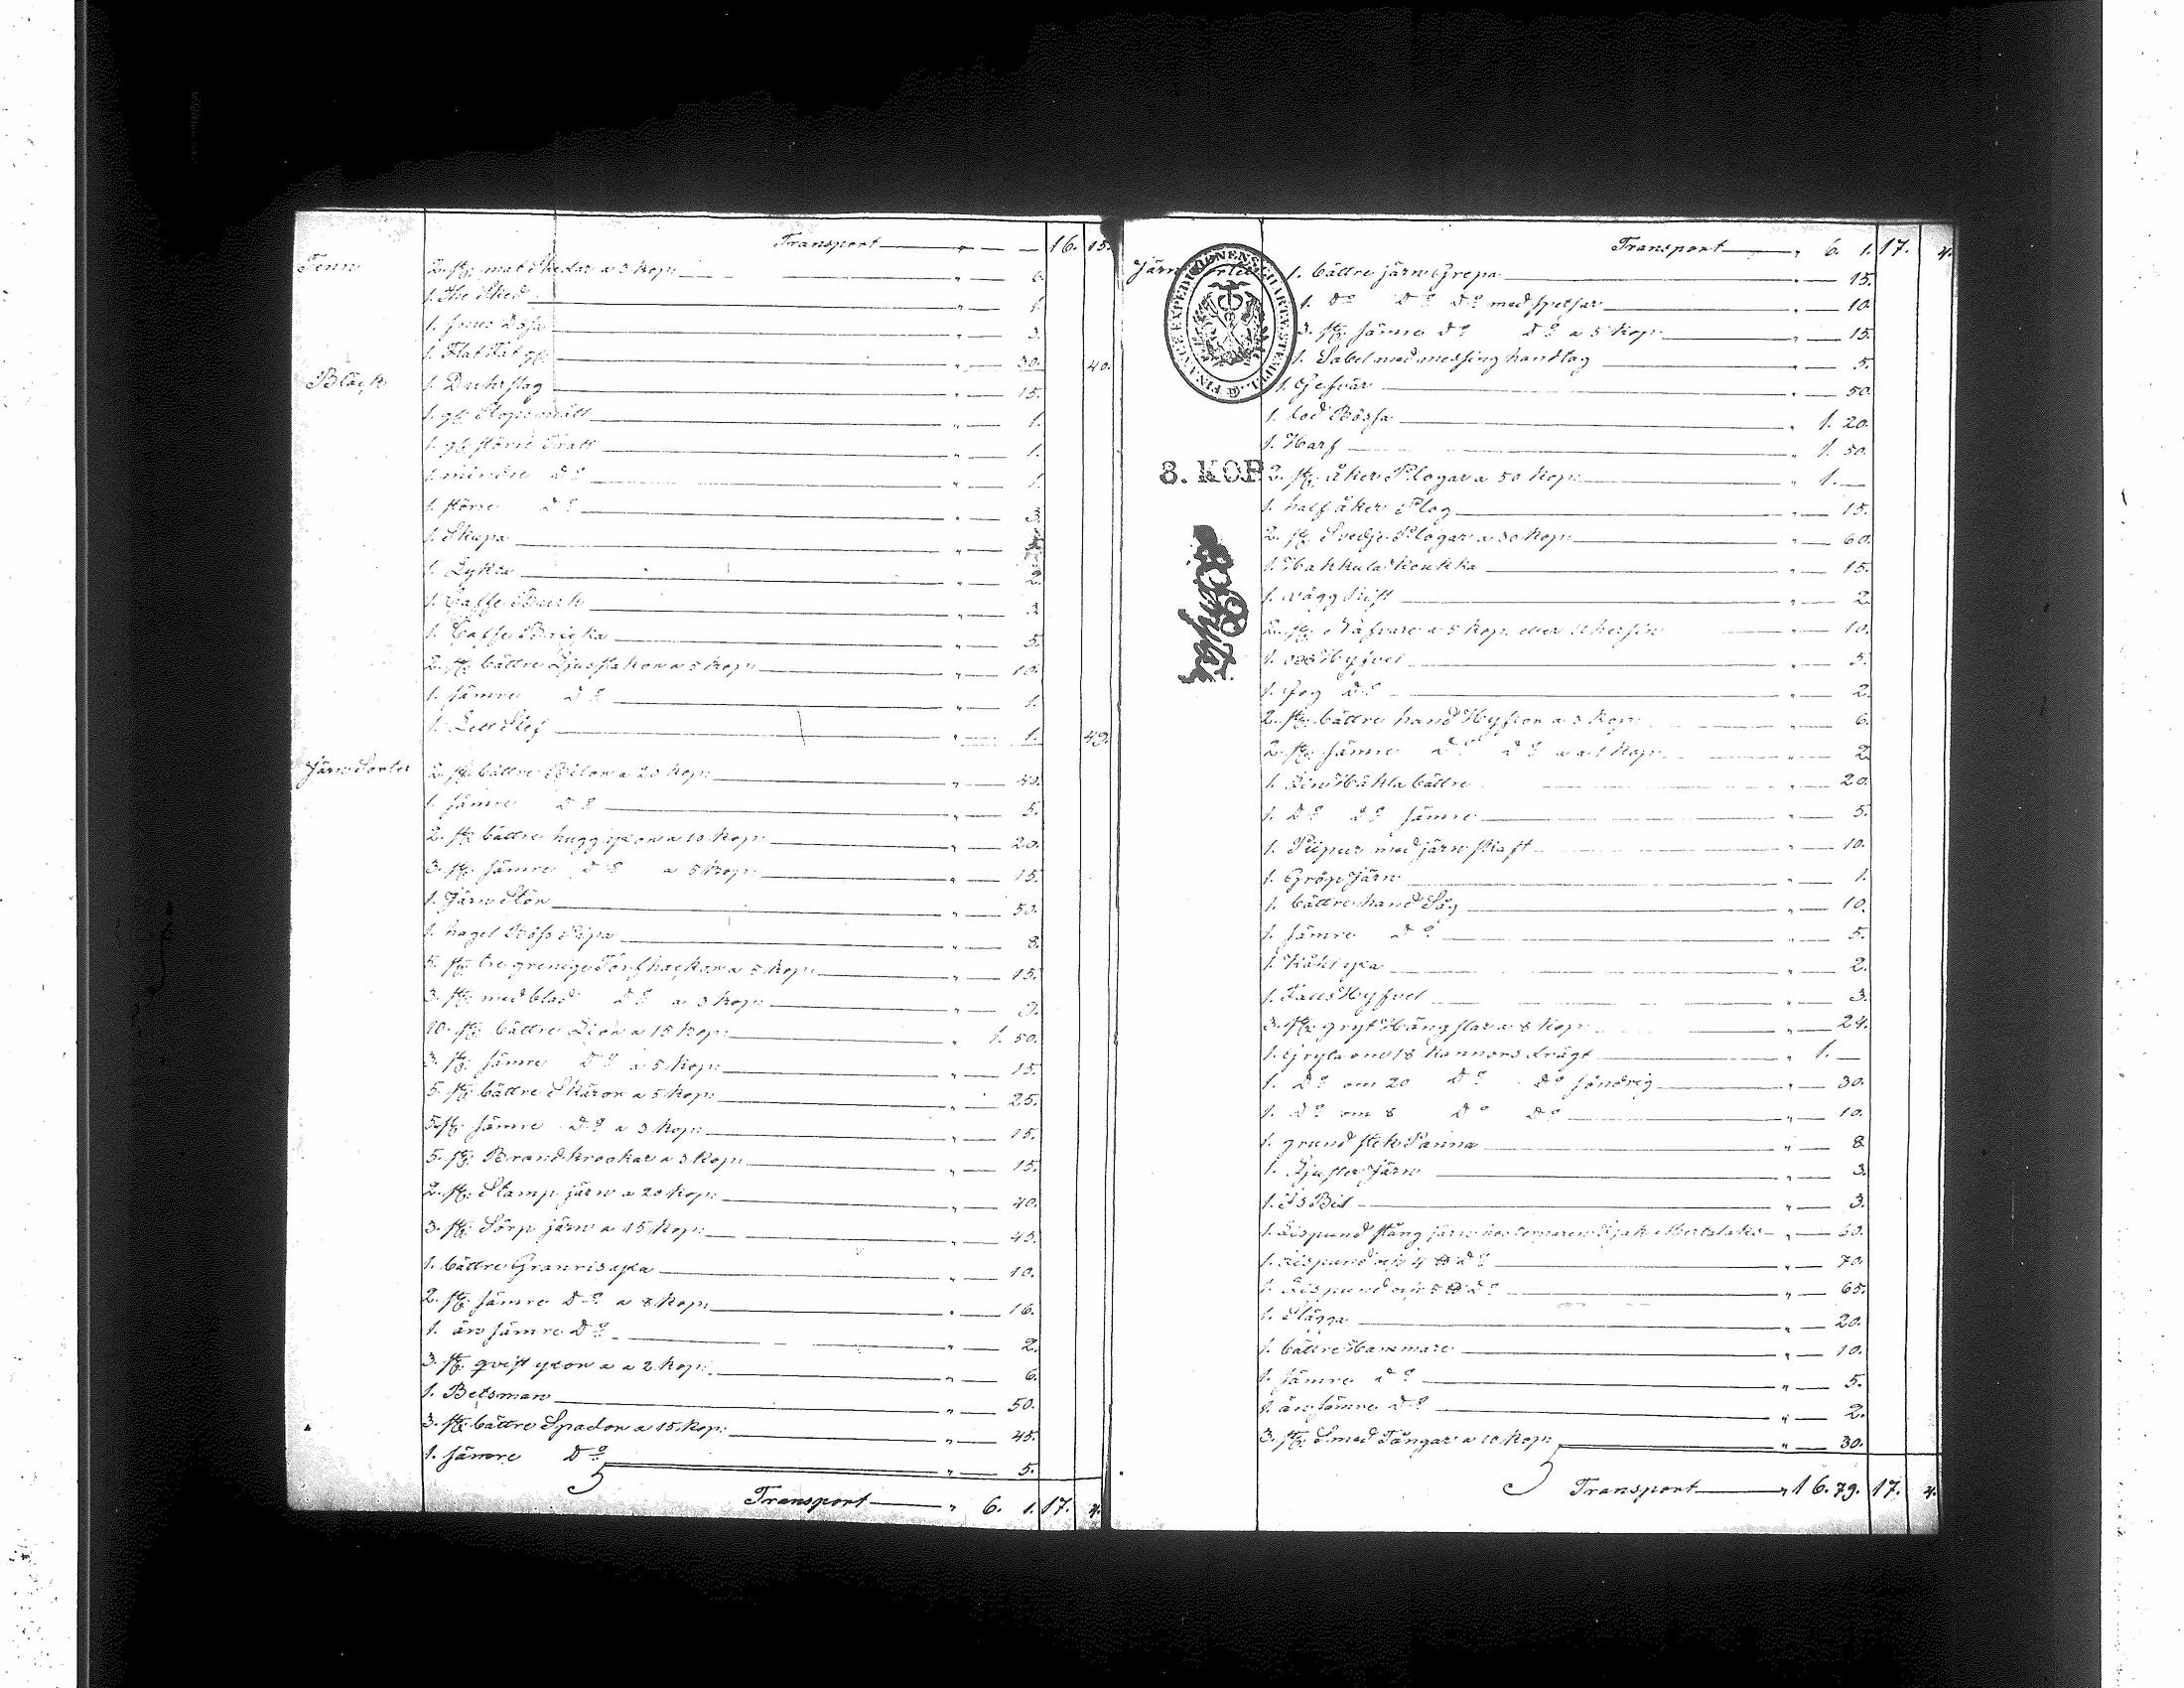 Transport — " — — 16. 15.
Tenn 2. st: mat Skedar a 3 kop: " — 6.
1. The Sked " — 1.
1. Snus Dosa " — 3.
1. Flat Fat gl: " — 30. 40.
Bläck 1. Duhrslag " — 15.
1. gl: Stopsmått " — 1.
1. gl: större Tratt " — 1.
1. mindre Do " — 1.
1. större Do " — 3.
1. Skupa " —
1. Lykta " — 2.
1. Caffe Burk " — 3.
1. Caffe Bricka " — 5.
2. st: bättre Ljusstakar a 5 kop: " — 10.
1. sämre Do " — 1.
1. Slef " — 1. 49.
Järn Sorter 2. st: bättre Bilor a 20 kop: " — 40.
1. sämre Do " — 5.
2. st: bättre hugg yxor a 10 kop: " — 20.
3. st: sämre Do a 5 kop: " — 15.
1. Järn Stör " — 50.
1. hagel Böss Pipa " — 8.
5. st: tre grenige Torfhackor a 3 kop: " — 15.
3. st: med blad Do a 3 kop: " — 9.
10. st: bättre Liar a 15 kop: " 1. 50.
3. st: sämre Do a 5 kop: " — 15.
5. st: bättre Skäror a 5 kop: " — 25.
5. st: sämre Do a 3 kop: " — 15.
5. st: Brandkrokar a 3 kop: " — 15.
2. st: Stamp järn a 20 kop: " — 40.
3. st: Sörp järn a 15 kop: " — 45.
1. bättre Granris yxa " — 10.
2. st: sämre Do a 8 kop: " — 16.
1. än sämre Do " — 2.
3. st: qvist yxor a a 2 kop: " — 6.
1. Betsman " — 50.
3. st: bättre Spador a 15 kop: " — 45.
1. sämre Do " — 5.
Transport — " 6. 1. 17. 4.
Transport — " 6. 1. 17. 4.
Järn Sorter 1. bättre järn Grepa " — 15.
1. Do Do Do med spetsar " — 10.
3. st: sämre Do Do a 5 kop: " — 15.
1. Sabel med messing handtag " — 5.
1. Gefvär " — 50.
1. Lod Bössa " 1. 20.
1. Harf " 1. 50.
8. KOP
2. st: åker Plogar a 50 kop: " 1. —
1. half åker Plog " — 15.
2. st: Svedje Plogar a 30 kop: " — 60.
1. Hakkula koukka " — 15.
1. vägg " — 2.
2. st: Näfvare a 5 kop: " — 10.
1. Hyfvel " — 5.
1. Fog Do " — 2.
2. st: bättre hand Hyflor a 3 kop: " — 6.
2. st: sämre Do Do a a 1 kop: " — 2.
1. Lin Häkla bättre " — 20.
1. Do Do sämre " — 5.
1. Piipur med järn skaft " — 10.
1. Gröp Järn " — 1.
1. bättre hand Såg " — 10.
1. sämre Do " — 5.
1. Hålt yxa " — 2.
1. Falts Hyfvel " — 3.
3. st: gryt Hängslar a 8 kop: " — 24.
1. Gryta om 18 Kannors drägt " 1. —
1. Do om 20 Do Do söndrig " — 30.
1. Do om 8 Do Do " — 10.
1. grund stek Panna " — 8.
1. Ljuster Järn " — 3.
1. Is Bil " — 3.
1. Lispund stång järn " — 60.
1. Lispund 4 ℔ Do " — 70.
1. Lispund 5 ℔ Do " — 65.
1. Slägga " — 20.
1. bättre Hammare " — 10.
1. sämre Do " — 5.
1. än sämre Do " — 2.
3. st: Smed Tänger a 10 kop: " — 30.
Transport — " 16. 79. 17. 4.